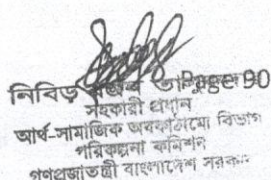 নিবিড় Page 90
সহকারী প্রধান
আর্থ-সামাজিক অবকাঠামো বিভাগ
পরিকল্পনা কমিশন
গণপ্রজাতন্ত্রী বাংলাদেশ সরকার